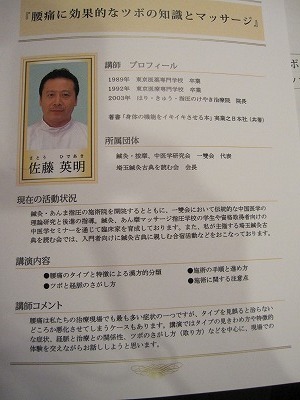 『腰痛に効果的なツボの知識とマッサージ』
講師 プロフィール
1989年 東京医薬専門学校 卒業
1992年 東京医療専門学校 卒業
2003年 はり・きゅう・指圧のけやき治療院 院長
著書「身体の機能をイキイキさせる本」実業之日本社(共著)
さとう ひであき
佐藤 英明
所属団体
鍼灸・按摩、中医学研究会 一雙会 代表
埼玉鍼灸古典を読む会 会長
現在の活動状況
鍼灸・あんま指圧の施術院を開院するとともに、一雙会において伝統的な中国医学の
理論研究と後進の指導。鍼灸、あん摩マッサージ指圧学校の学生や資格取得者向けの
中医学セミナーを通じて臨床家を育成しております。また、私が主催する埼玉鍼灸古
典を読む会では、入門者向けに鍼灸古典に親しむ合宿活動などをおこなっております。
講演内容
●腰痛のタイプと特徴による漢方的分類
●施術の手順と進め方
●ツボと経脈のさがし方
●施術に関する注意点
講師コメント
腰痛は私たちの治療現場でも最も多い症状の一つですが、タイプを見誤ると治らない
どころか悪化させてしまうケースもあります。講演ではタイプの見きわめ方や特徴的
な症状、経脈と治療との関係性、ツボのさがし方(取り方)などを中心に、現場での
体験を交えながらお話ししようと思います。